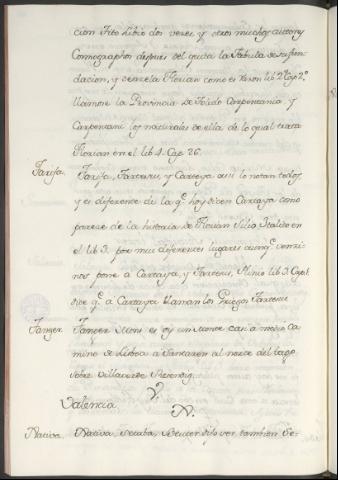 cion Tito Libio dos veces y otros muchos autores y
Cosmographos despues del quita la Fabula de su fun-
dacion, y cuentala Florian como es Varon lib 2º Cap 2º
llamose la Provincia de Toledo Carpentania, y
Carpentani los naturales de ella de lo qual trata
Florian en el lib 4. Cap. 26.
Tarifa. Tarifa, Tartesus y Carteya asi lo notan todos
y es diferente de la q.e hoy dicen Cartaya como
parece de la historia de Florian Silio Italico en
el lib 3. por mui diferentes lugares aunq.e vezi-
nos pone a Cartaya, y Tartesus, Plinio lib 3. Cap.
dice q.e a Carteya llaman los Griegos Tartesus
Tanger. Tanger es oy un monte casi a medio ca-
mino de Lisboa a Santaren al norte del tajo
sobre Villaverde
V.
Valencia.
N.
Nativa. Nativa, Setaba, ver tambien Se-